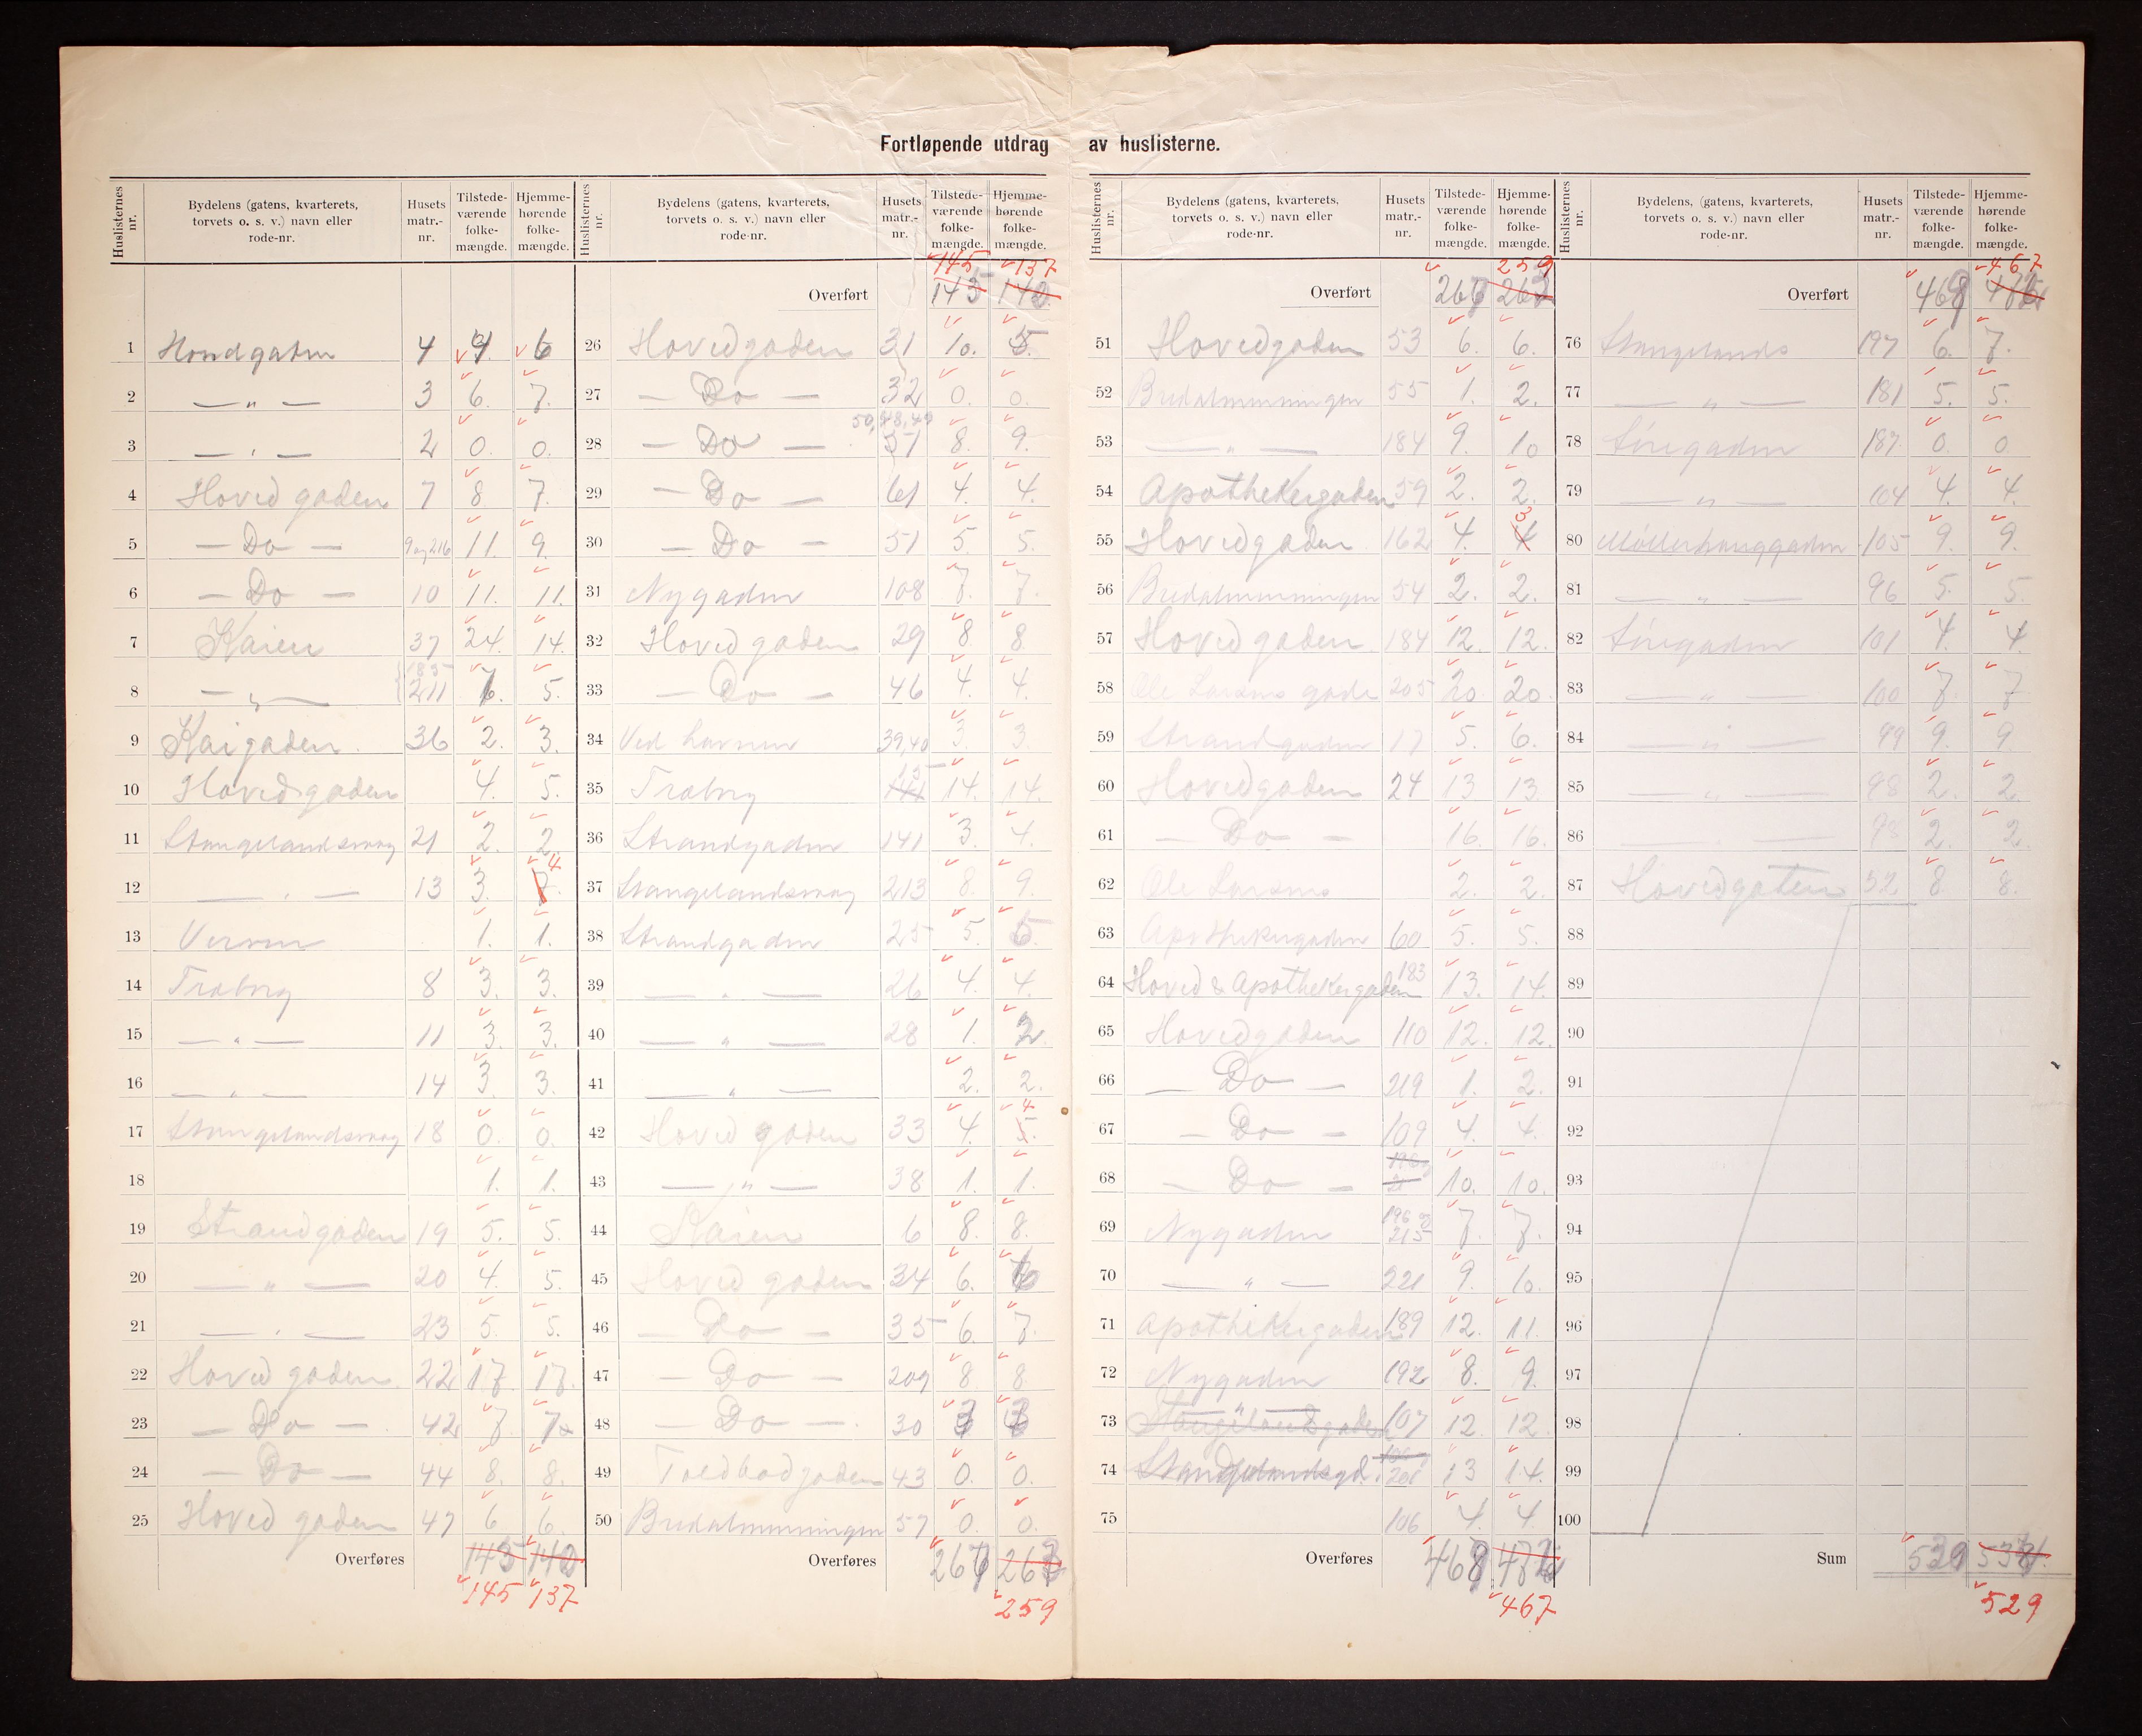 Fortløpende utdrag av huslisterne.
Huslisternes nr. Bydelens (gatens, kvarterets, torvets o. s. v.) navn eller rode-nr. Husets matr.-nr. Tilstede-værende folke-mængde. Hjemme-hørende folke-mængde.
1 Hovedgaden 4 9. 6
2 — „ — 3 6. 7.
3 — „ — 2 0. 0.
4 Hovedgaden 7 8 7.
5 — Do — 9 og 216 11. 9.
6 — Do — 10 11. 11.
7 Kaien 37 24. 14.
8 — „ — 185 211 6. 5.
9 Kaigaden. 36 2. 3.
10 Hovedgaden 4. 5.
11 Stangelandsvæg 21 2. 2.
12 — „ — 13 3. 4
13 1. 1.
14 Traborg 8 3. 3.
15 — „ — 11 3. 3.
16 — „ — 14 3. 3.
17 Stangelandsvæg 18 0. 0.
18 1. 1.
19 Strandgaden 19 5. 5.
20 — „ — 20 4. 5.
21 — „ — 23 5. 5.
22 Hovedgaden. 22 17. 17.
23 — Do — 42 7. 7
24 — Do — 44 8. 8.
25 Hovedgaden 47 6 6.
Overføres 145 140
145 137
Huslisternes nr. Bydelens (gatens, kvarterets, torvets o. s. v.) navn eller rode-nr. Husets matr.-nr. Tilstede-værende folke-mængde. Hjemme-hørende folke-mængde.
145 137
Overført 145 140
26 Hovedgaden 31 10. 5.
27 — Do — 32 0. 0.
28 — Do — 50, 48, 49 51 8. 9.
29 — Do — 61 4. 4.
30 — Do — 51 5. 5.
31 Nygaden 108 7. 7.
32 Hovedgaden 29 8 8.
33 — Do — 46 4. 4.
34 Ved havnen 39,40 3. 3
35 Traborg 15 14. 14.
36 Strandgaden 141 3. 4.
37 Stangelandsvæg 213 8. 9.
38 Strandgaden 25 5. 5.
39 — „ — 26 4. 4.
40 — „ — 28 1. 2.
41 — „ — 2. 2.
42 Hovedgaden 33 4. 5. 4
43 — „ — 38 1. 1.
44 Kaien 6 8. 8.
45 Hovedgaden 34 6. 6
46 — Do — 35 6. 7.
47 — Do — 209 8 8
48 — Do —. 30 3 3
49 Toldbodgaden 43 0. 0.
50 Bredalmenningen 57 0. 0.
Overføres 267 263
259
Huslisternes nr. Bydelens (gatens, kvarterets, torvets o. s. v.) navn eller rode-nr. Husets matr.-nr. Tilstede-værende folke-mængde. Hjemme-hørende folke-mængde.
259
Overført 267 263
51 Hovedgaden 53 6. 6.
52 Bredalmenningen 55 1. 2.
53 — „ — 184 9. 10
54 Apothekergaden 59 2. 2.
55 Hovedgaden 162 4. 4 3
56 Bredalmenningen 54 2. 2.
57 Hovedgaden. 184 12. 12.
58 Ole Larsens gade 205 20. 20.
59 Strandgaden 17 5. 6.
60 Hovedgaden 24 13 13
61 — Do — 16. 16.
62 Ole Larsens 2. 2.
63 Apothekergaden 60 5. 5.
64 Hoved & Apothekergaden 183 13. 14.
65 Hovedgaden 110 12. 12.
66 — Do — 219 1. 2.
67 — Do — 109 4. 4.
68 — Do — 10. 10.
69 Nygaden 196 og 215 7. 7.
70 — „ — 221 9. 10.
71 Apothekergaden 189 12. 11.
72 Nygaden 192 8. 9.
73 — „ — Stangelandsgaden 107 12. 12.
74 Stangelandsgd. 201 13 14.
75 106 4. 4.
Overføres 469 472
467
Huslisternes nr. Bydelens (gatens, kvarterets, torvets o. s. v.) navn eller rode-nr. Husets matr.-nr. Tilstede-værende folke-mængde. Hjemme-hørende folke-mængde.
467
Overført 469 472
76 Stangelands 197 6. 7.
77 — „ — 181 5. 5.
78 187. 0. 0
79 — „ — 104 4. 4.
80 Møllerhauggaden 105 9. 9.
81 — „ — 96 5. 5.
82 101 4. 4.
83 — „ — 100 7. 7.
84 — „ — 99 9. 9
85 — „ — 98 2. 2
86 — „ — 2. 2.
87 Hovedgaten 52 8. 8.
88
89
90
91
92
93
94
95
96
97
98
99
100
Sum 530 534.
529